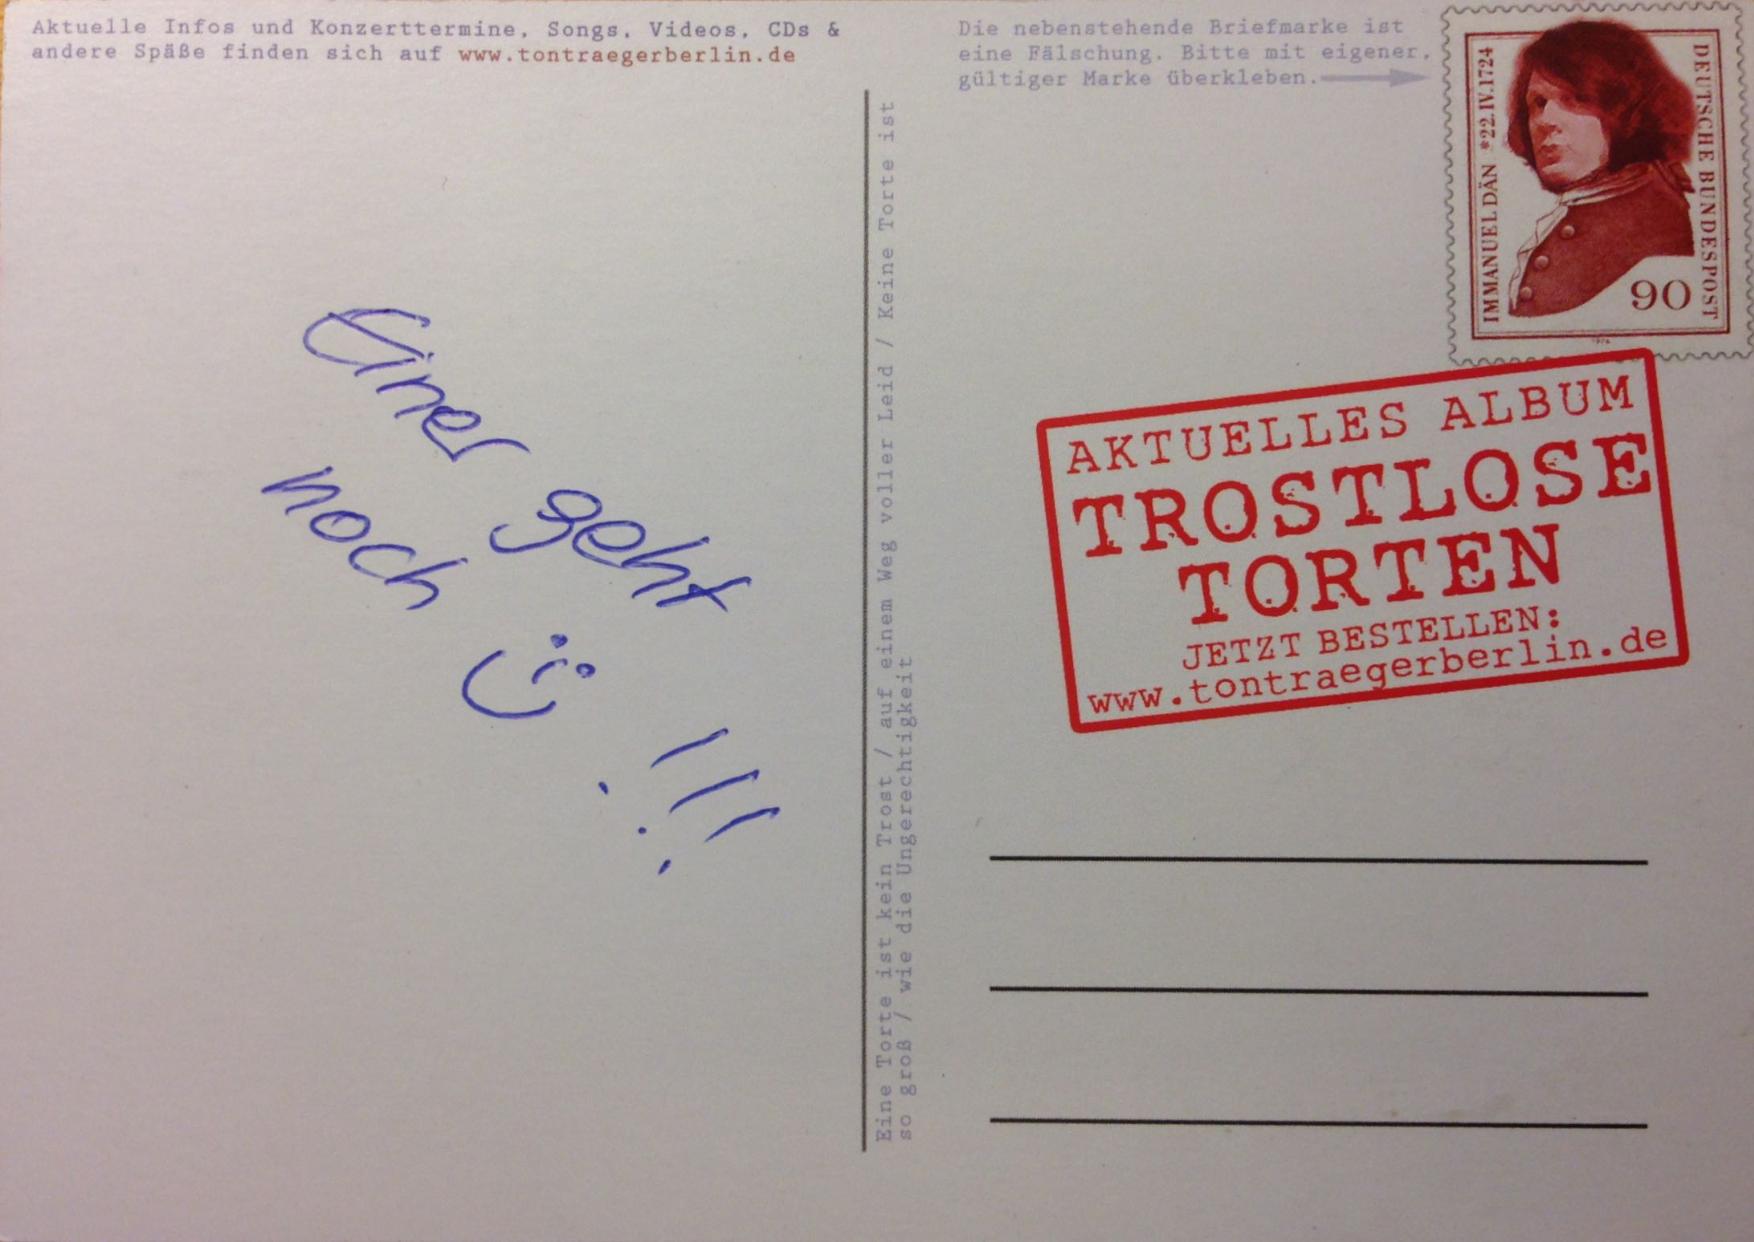 Aktuelle Infos und Konzerttermine, Songs, Videos, CDs &
andere Späße finden sich auf www.tontraegerberlin.de
Einer geht
noch :) !!!
Eine Torte ist kein Trost / auf einem Weg voller Leid / Keine Torte ist
so groß / wie die Ungerechtigkeit
Die nebenstehende Briefmarke ist
eine Fälschung. Bitte mit eigener,
gültiger Marke überkleben.
IMMANUEL DÄN *22.IV.1724
DEUTSCHE BUNDESPOST
90
AKTUELLES ALBUM
TROSTLOSE
TORTEN
JETZT BESTELLEN:
www.tontraegerberlin.de